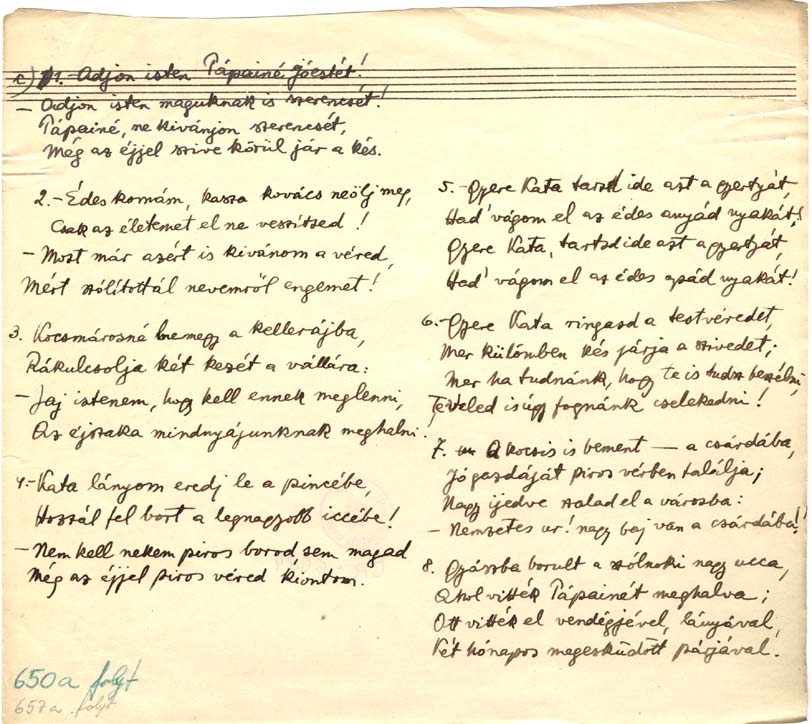 c) 1. - Adjon isten Pápainé jóestét!
- Adjon isten maguknak is szerencsét!
Pápainé, ne kivánjon szerencsét,
Még az éjjel szive körül jár a kés.
2. - Édes komám, kasza kovács neölj meg,
Csak az életemet el ne veszítsed!
- Most már azért is kivánom a véred,
Mért szólítottál nevemről engemet!
3. Kocsmárosné bemegy a kellerájba,
Rákulcsolja két kezét a vállára:
- Jaj istenem, hogy kell ennek meglenni,
Az éjszaka mindnyájunknak meghalni.
4. - Kata lányom eredj le a pincébe,
Hozzál fel bort a legnagyobb iccébe!
- Nem kell nekem piros borod, sem magad
Még az éjjel piros véred kiontom.
5. - Gyere Kata tarsd ide azt a gyertyát,
Had' vágom el az édes anyád nyakát!
Gyere Kata, tartsd ide azt a gyertyát,
Had' vágom el az édes apád nyakát!
6. - Gyere Kata ringasd a testvéredet,
Mer külömben kés járja a szivedet;
Mer ha tudnánk, hogy te is tudsz beszélni,
Teveled is úgy fognánk cselekedni!
7. A kocsis is bement — a csárdába,
Jó gazdáját piros vérben találja;
Nagy ijedve szalad el a városba:
- Nemzetes ur! nagy baj van a csárdába!
8. Gyászba borult a szólnoki nagy ucca,
Ahol vitték Pápainét meghalva;
Ott vitték el vendégjével, lányával,
Két hónapos megesküdött párjával.
650a folyt
657a folyt